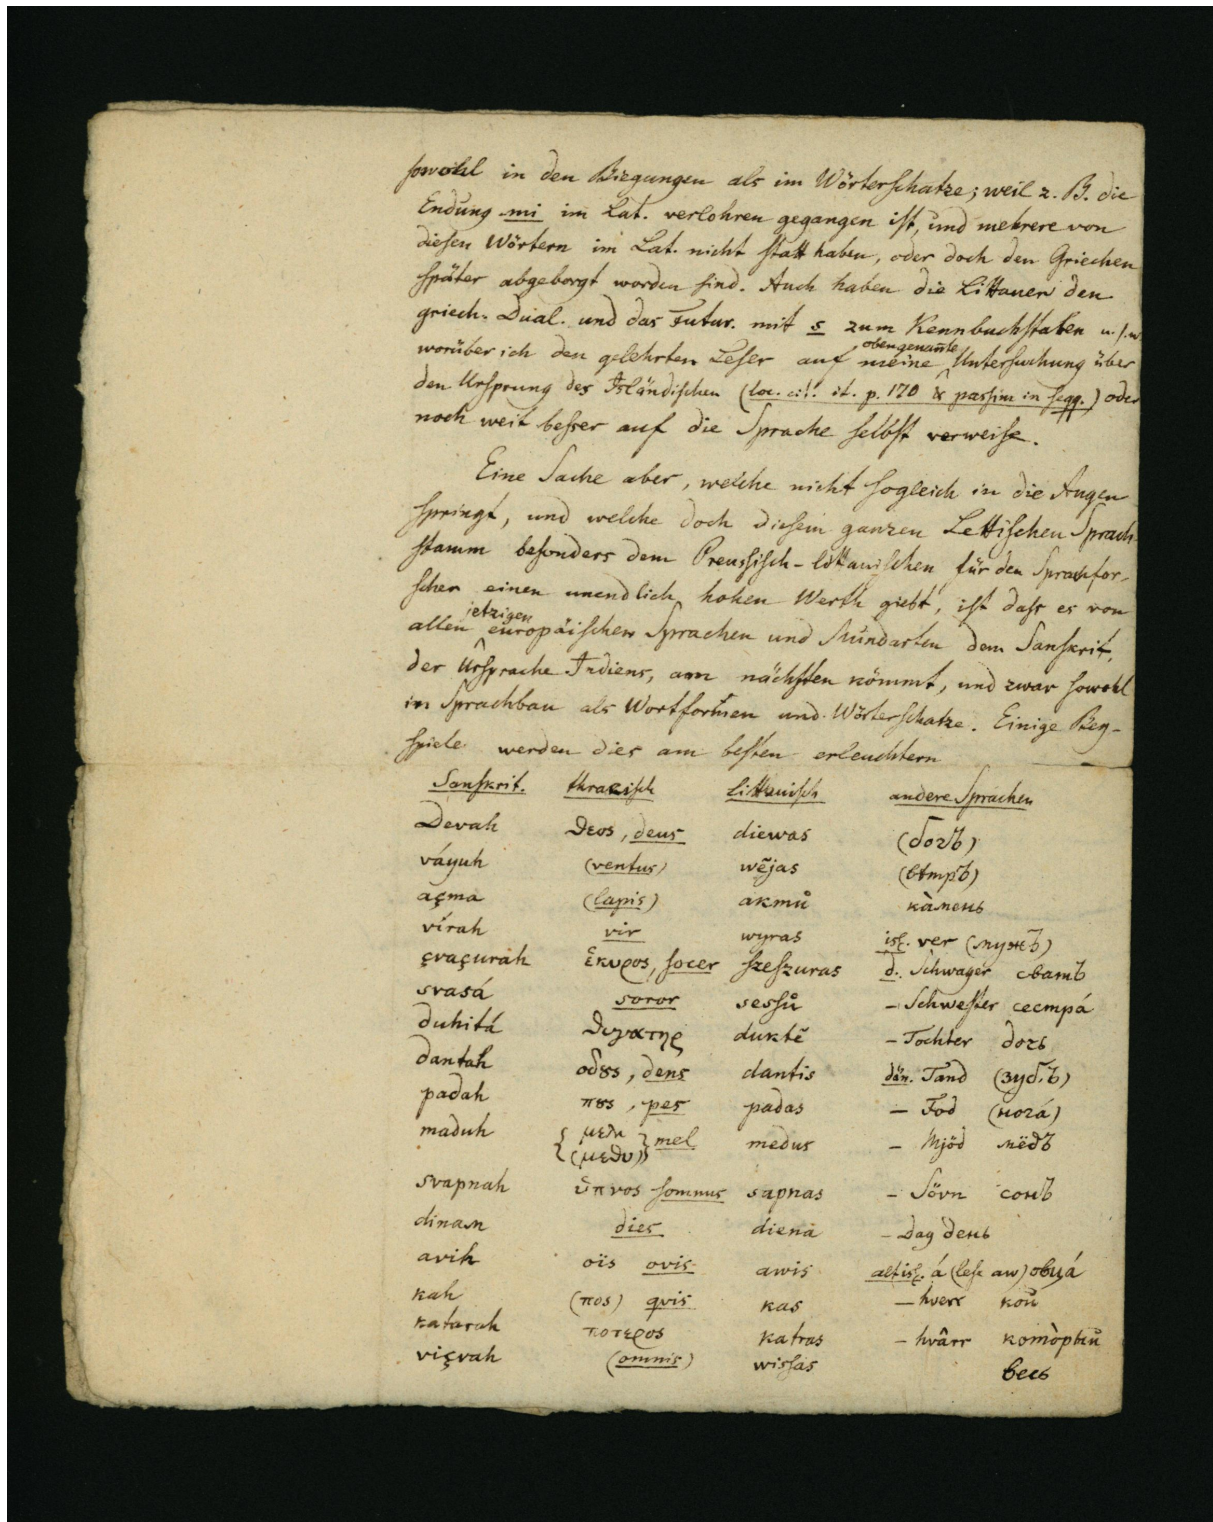 sowohl in den Biegungen als im Wörterschatze; weil z. B. die
Endung mi im Lat. verlohren gegangen ist, und mehrere von
diesen Wörtern im Lat. nicht statt haben, oder doch den Griechen
später abgeborgt worden sind. Auch haben die Littauer den
griech. Dual. und das Futur. mit s zum Kennbuchstaben u.s.w.
worüber ich den gelehrten Leser auf meine obengenan̄te Untersuchung über
den Ursprung des Isländischen (loc. cit. it. p. 170 & passim in seqq.) oder
noch weit besser auf die Sprache selbst verweise.
Eine Sache aber, welche nicht sogleich in die Augen
springt, und welche doch diesem ganzen Lettischen Sprach-
stamm besonders dem Preussisch-littauischen für den Sprachfor-
scher einen unendlich hohen Werth giebt, ist dass es von
allen jetzigen europäischen Sprachen und Mundarten dem Sanskrit,
der Ursprache Indiens, am nächsten kömmt, und zwar sowohl
im Sprachbau als Wortformen und Wörterschatze. Einige Bey-
spiele werden dies am besten erleuchtern
Sanskrit. thrazisch littauisch andere Sprachen
Devah θεος, deus diewas (богъ)
váyuh (ventus) wējas (вѣтръ)
açma (lapis) akmů кàмень
vírah vir wyras isl. ver (мужъ)
çvaçurah ἑκυρος, socer szeszuras d. Schwager сватъ
svasá soror sessů – Schwester сестрá
duhitá θυγατηρ duktē – Tochter дочь
dantah οδȣς, dens dantis dän. Tand (зубъ)
padah πȣς, pes padas – Fod (ногá)
maduh {μελι (μεθυ)} mel medus – Mjöd мёдъ
svapnah ὑπνος somnus sapnas – Sövn сонъ
dinam dies diena – Dag день
avih οϊς ovis awis altisl. á (les aw) овцá
kah (πος) qvis kas – hverr кой
katarah ποτερος katras – hvârr котòрый
viçvah (omnis) wissas весь